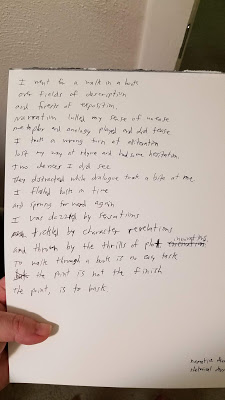 I went for a walk in a book
over fields of description
and forests of exposition
narration lulled my sense of unease
metaphor and analogy played and did tease
I took a wrong turn at alliteration
lost my way at rhyme and had some hesitation.
two devices I did see
They distracted while dialogue took a bite at me
I flashed back in time
and sprung forward again
I was dazzled by sensations
tickled by character revelations
and thrown by the thrills of plot inventions
To walk through a book is no easy task
but the point is not the finish
the point, is to bask.
narrative